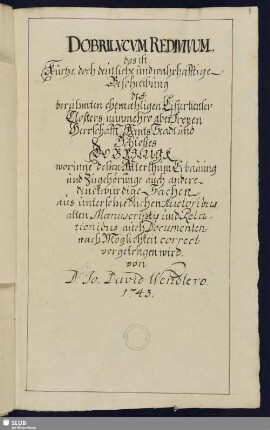 DOBRILUCUM REDIVIVUM.
das ist
Kurtze doch deutliche und wahrhafftige
Beschreibung
des
berühmten ehemahligen Cistercienser
Closters nunmehro aber Freyen
Herrschafft Amts Stadt und
Schlosses
DOBRILUGK
worinne dessen Alterthum Erbauung
und Zugehörunge auch andere
denckwürdige Sachen
aus unterschiedlichen Auctoribus
alten Manuscriptis und Rela-
tionibus auch Documenten
nach Möglichkeit correct
vorgetragen wird.
von
D. Jo. David Wendlero.
1743.
SLUB